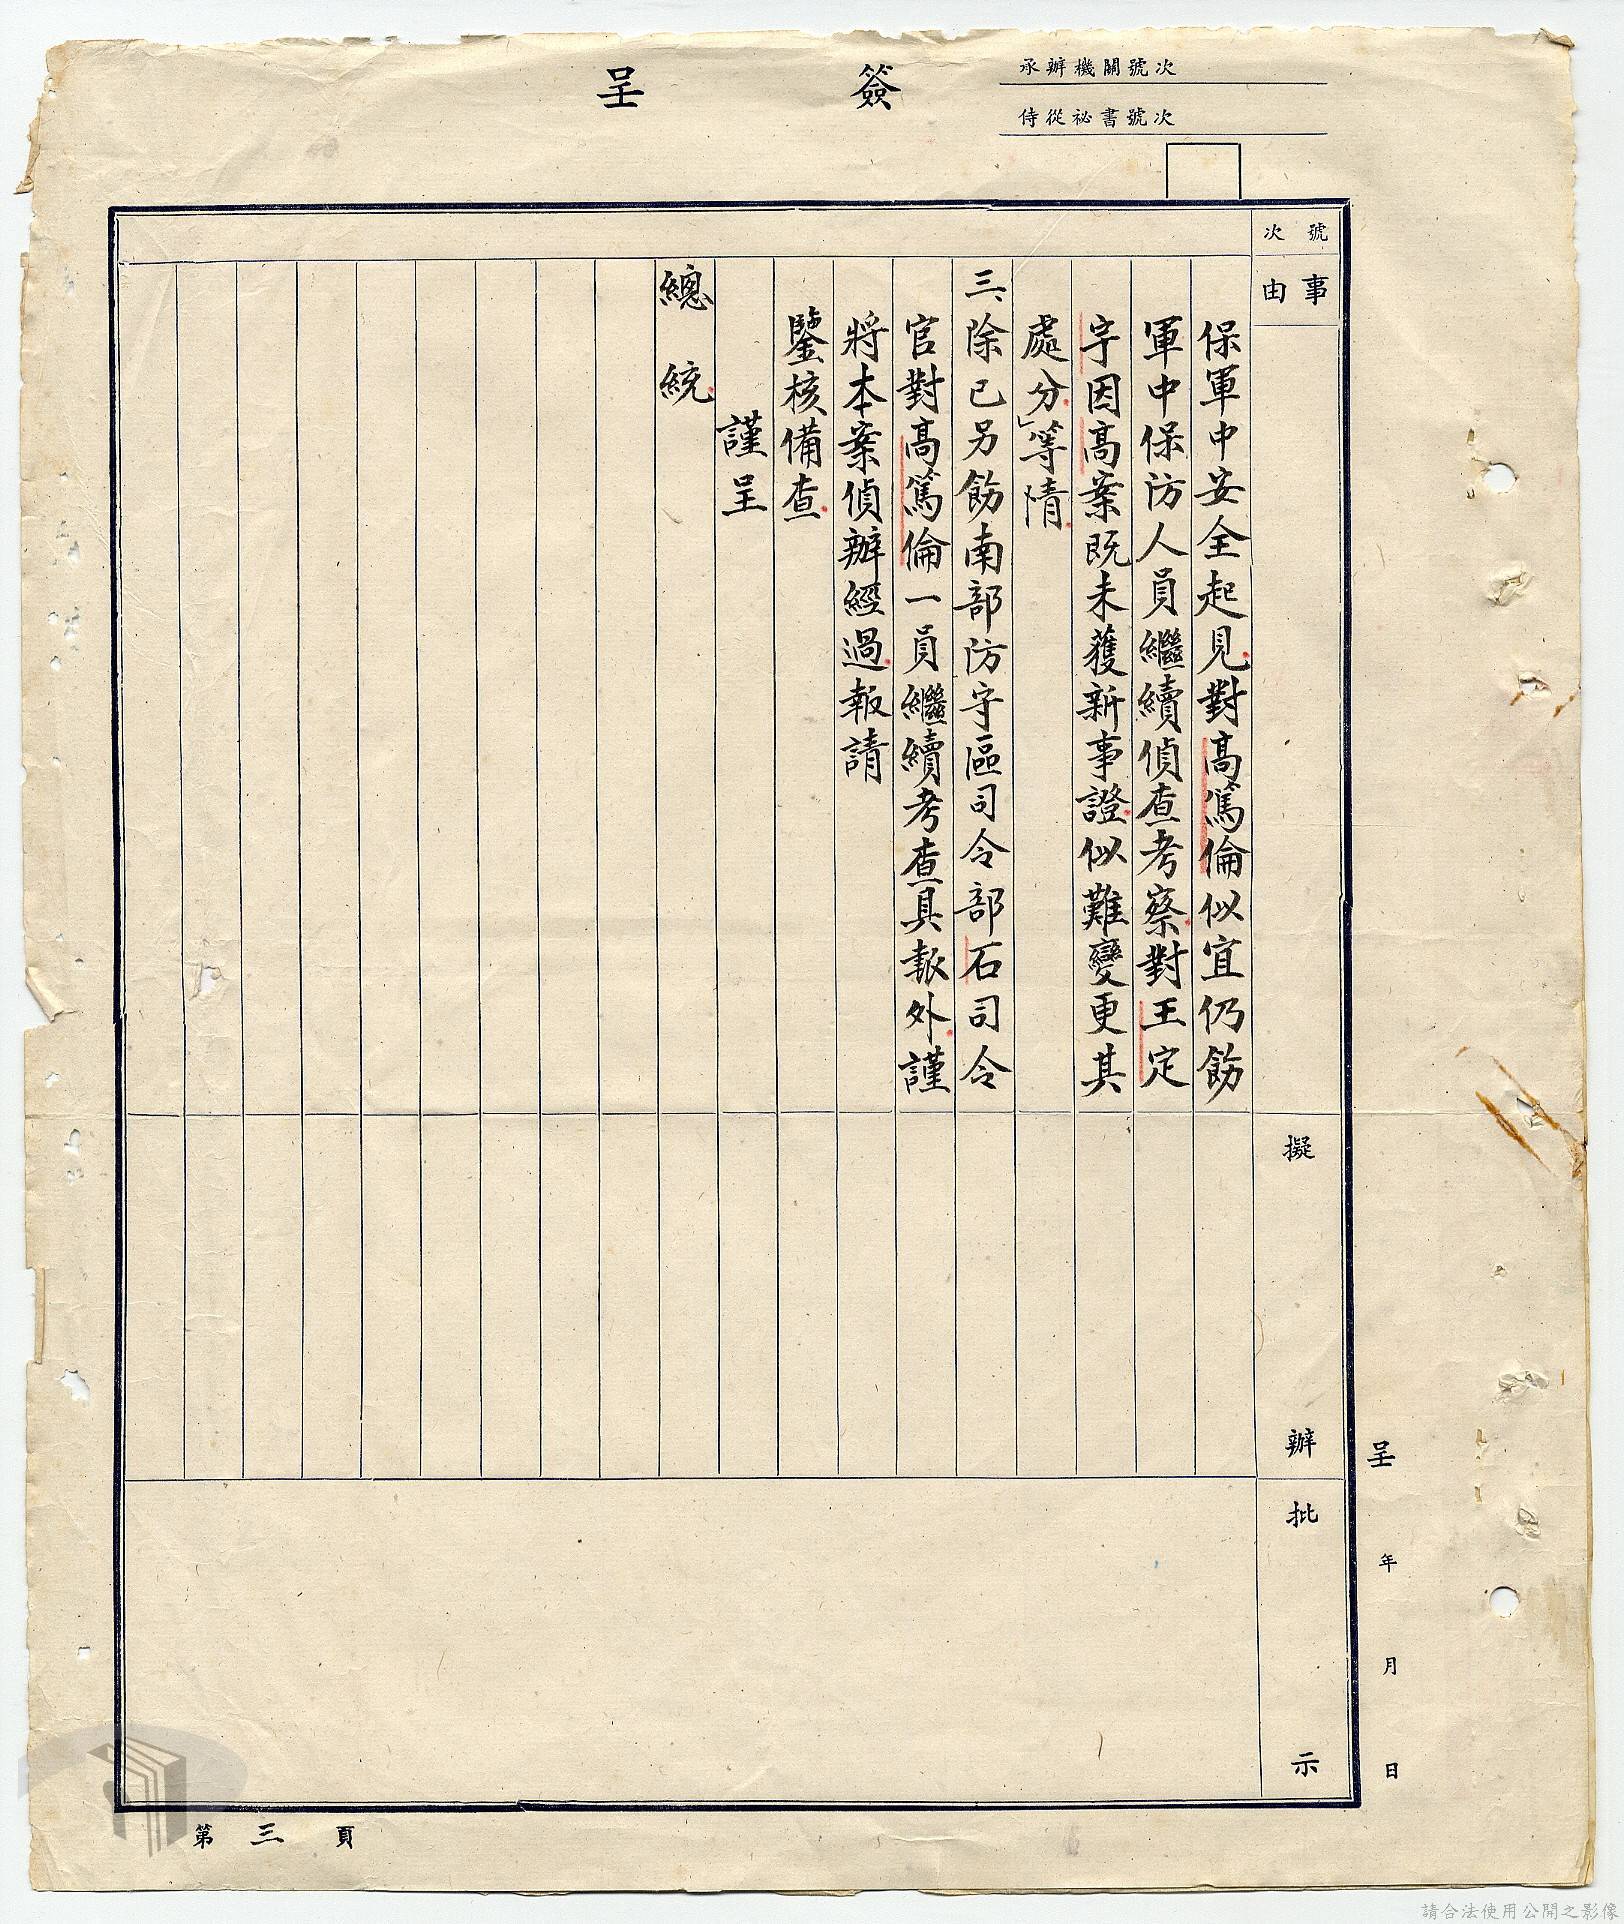 簽呈
承辦機關號次
侍從祕書號次
號次
事由
擬辦
批示
保軍中安全起見對高篤倫似宜仍飭
軍中保防人員繼續偵查考察對王定
宇因高案既未獲新事證似難變更其
處分」等情
三、除已另飭南部防守區司令部石司令
官對高篤倫一員繼續考查具報外謹
將本案偵辦經過報請
鑒核備查
謹呈
總統
呈 年 月 日
第三頁
請合法使用公開之影像